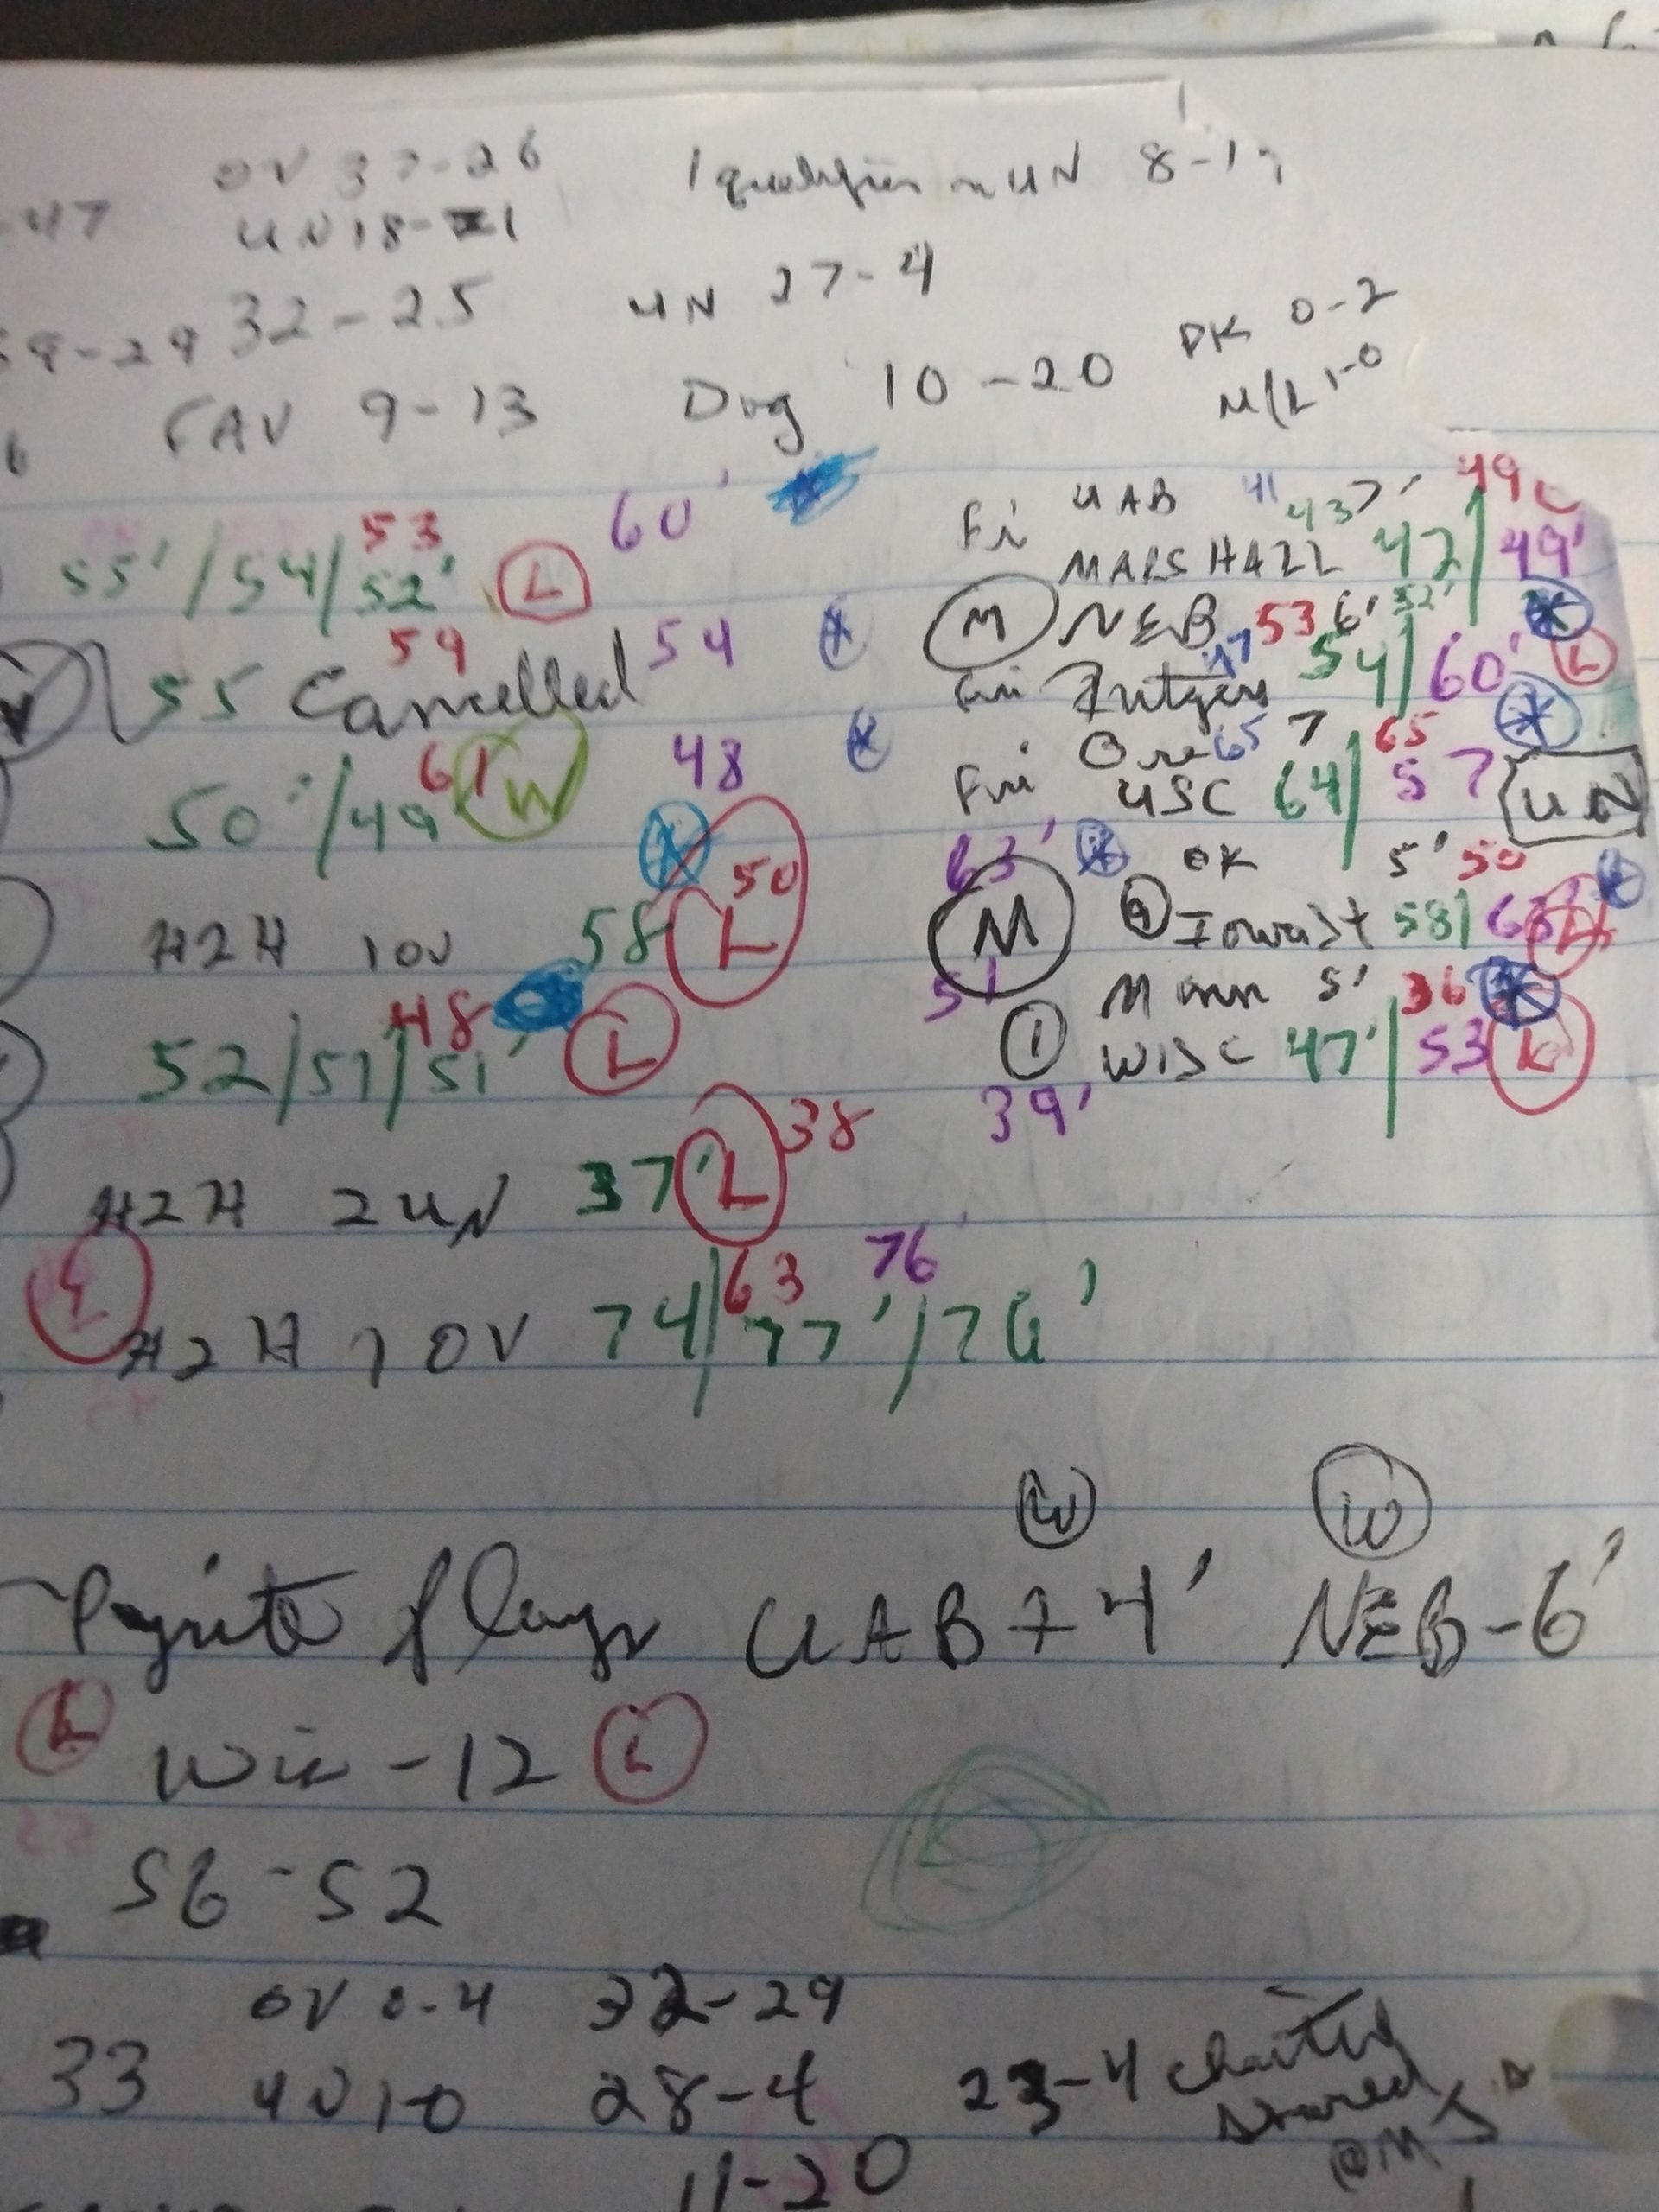 OV 37-26 1 qualifier UN 8-1
47 UN 18-1
9-29 32-25 UN 27-4
FAV 9-13 Dog 10-20 PK 0-2
M/L 1-0
60' Fri UAB 41 43 7' 49
55'/54/52' 53 L MARSHALL 47/49'
M NEB 53 6' 52'
55 Cancelled 59 54 Fri Rutgers 47 54/60' L
50'/49 61 W 48 Fri Ore 65 7 65
USC 64/57 UN
63' OK 5' 50
H2H 1 OV 58 L 50 M 9 Iowa St 58/63' L
51 Minn 5' 36
52/51/51' 48 L 1 WISC 47'/53 L
39'
H2H 2 UN 37' L 38
L H2H 1 OV 74/77'/76' 63 76'
W W
plays UAB + 4' NEB - 6'
L Wis - 12 L
56-52
OV 0-4 32-29
33 UN 1-0 28-4 23-4
11-20